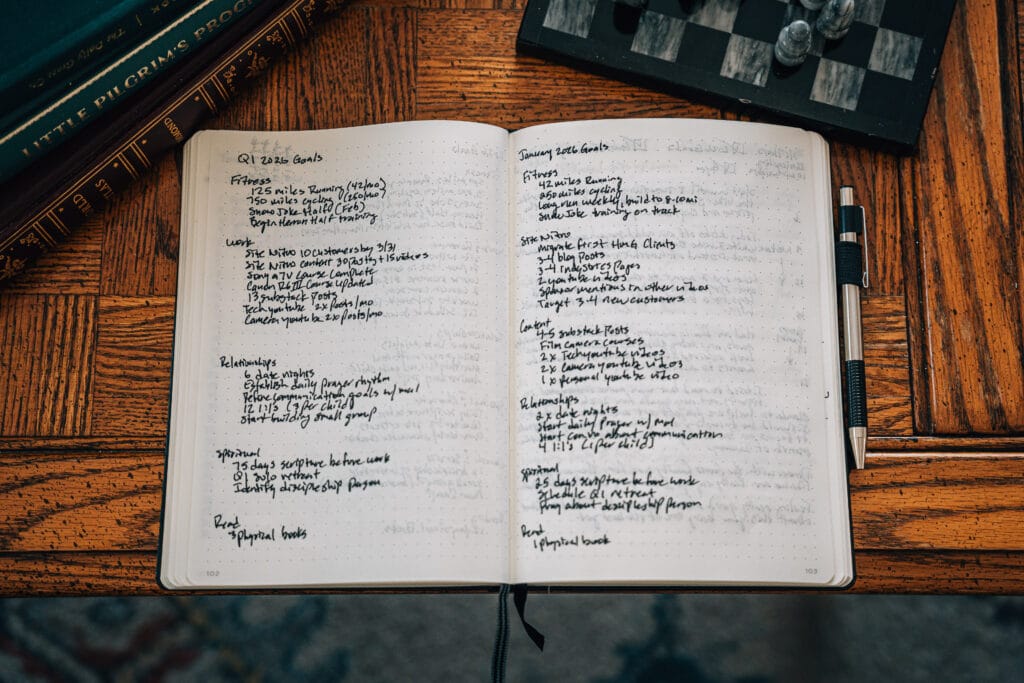 The Daily Grace Co
LITTLE PILGRIM'S PROG
Q1 2026 Goals
Fitness
125 miles Running (42/mo)
750 miles cycling (250/mo)
Snow Joke Half (Feb)
Begin Heron Half training
Work
Site Nitro 10 customers by 3/31
Site Nitro content 30 posts + 15 videos
Sony a7V Course Complete
Canon R6 III Course Updated
13 substack Posts
Tech youtube 2x Posts/mo
Camera youtube 2x Posts/mo
Relationships
6 date nights
Establish daily prayer rhythm
Define communication goals w/ mal
12 1:1's (3 per child)
Start building small group
Spiritual
75 days scripture before work
Q1 solo retreat
Identify discipleship person
Read
3 physical books
102
January 2026 Goals
Fitness
42 miles Running
250 miles cycling
Long run weekly, build to 8-10mi
Snow Joke training on track
Site Nitro
migrate first HMG Clients
3-4 blog Posts
3-4 industries Pages
2 youtube videos
Sponsor mentions in other videos
Target 3-4 new customers
Content
4-5 substack Posts
Film camera courses
2x Tech youtube videos
2x Camera youtube videos
1x personal youtube video
Relationships
2x date nights
Start daily Prayer w/ mal
Start convo about communication
4 1:1's (1 per child)
Spiritual
25 days scripture before work
Schedule Q1 retreat
Pray about discipleship person
Read
1 physical book
103